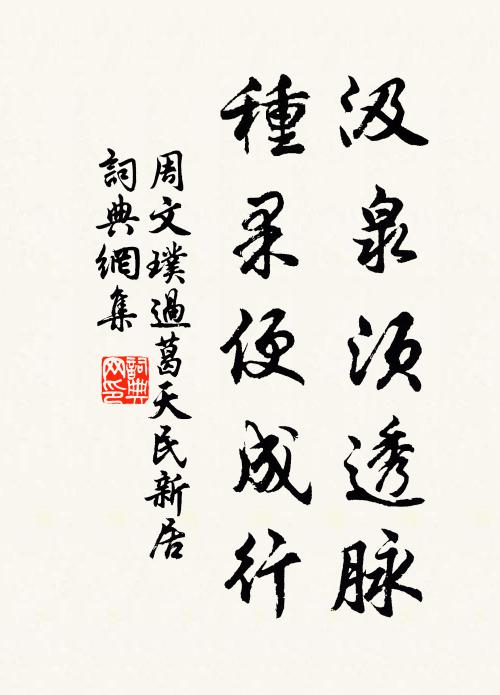 汲泉須透脉
種果便成行
周文璞過葛天民新居
詞典網集
詞典網印